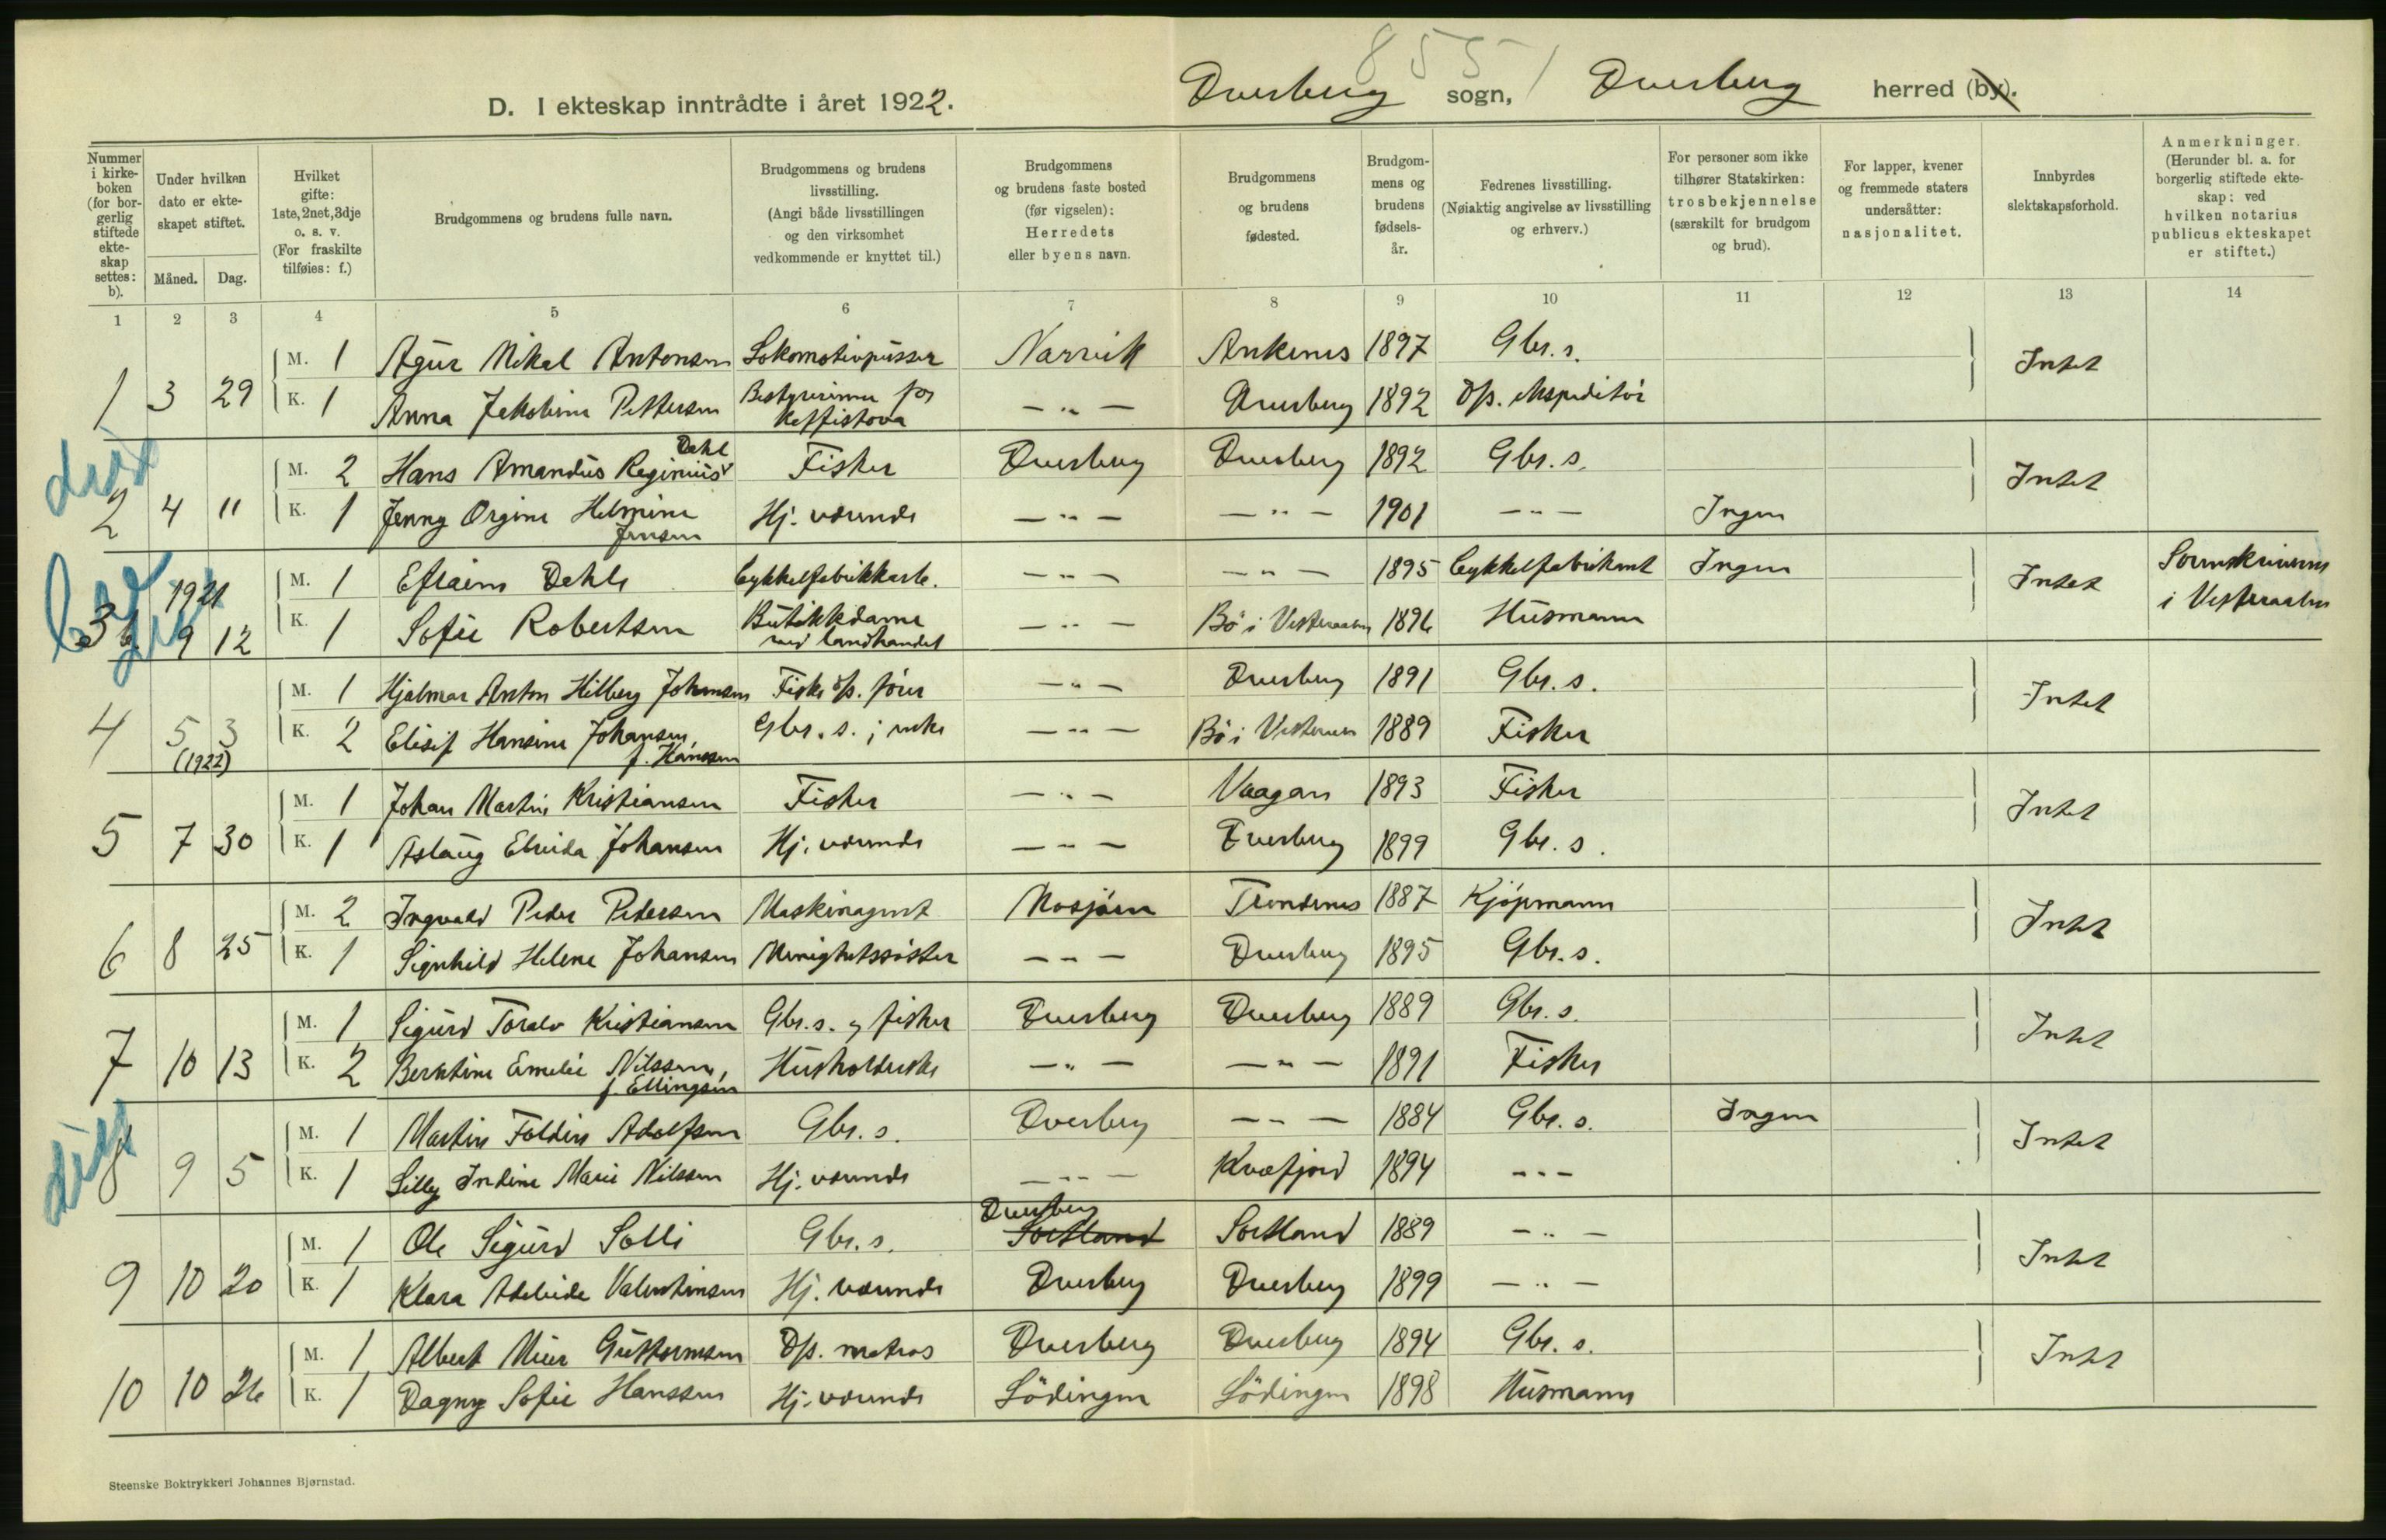 855 /
D. I ekteskap inntrådte i året 1922. Dverberg sogn, Dverberg herred (by).
Nummer i kirkeboken (for borgerlig stiftede ekteskap settes: b).
Under hvilken dato er ekteskapet stiftet.
Måned. Dag.
Hvilket gifte: 1ste, 2net, 3dje o. s. v. (For fraskilte tilføies: f.)
Brudgommens og brudens fulle navn.
Brudgommens og brudens livsstilling. (Angi både livsstillingen og den virksomhet vedkommende er knyttet til.)
Brudgommens og brudens faste bosted (før vigselen): Herredets eller byens navn.
Brudgommens og brudens fødested.
Brudgommens og brudens fødselsår.
Fedrenes livsstilling. (Nøiaktig angivelse av livsstilling og erhverv.)
For personer som ikke tilhører Statskirken: trosbekjennelse (særskilt for brudgom og brud).
For lapper, kvener og fremmede staters undersåtter: nasjonalitet.
Innbyrdes slektskapsforhold.
Anmerkninger. (Herunder bl. a. for borgerlig stiftede ekteskap: ved hvilken notarius publicus ekteskapet er stiftet.)
1 2 3 4 5 6 7 8 9 10 11 12 13 14
M. 1 Agur Mikal Antonsen Lokomotivpusser Narvik Ankenes 1897 Gbr. s. Intet
1 3 29 K. 1 Anna Jakobine Pettersen Bestyrerinne for Kaffistova — " — Dverberg 1892 Dp. ekspeditør
M. 2 Hans Amandus Reginius Dahl Fisker Dverberg Dverberg 1892 Gbr. s. Intet
2 4 11 K. 1 Jenny Orgine Helmine Jensen Hj. værende — " — — " — 1901 — " — Ingen
1921 M. 1 Efraim Dahle Cykkelfabrikkarb. — " — — " — 1895 Cykkelfabrikant Ingen Intet Sorenskriveren i Vesteraalen
3 b 9 12 K. 1 Sofie Robertsen Butikkdame ved landhandel — " — Bö i Vesteraalen 1896 Husmann
M. 1 Hjalmar Anton Hilberg Johansen Fiske dp. fører — " — Dverberg 1891 Gbr. s. Intet
4 5 3 (1922) K. 2 Elisif Hansine Johansen, f. Hanssen Gbr. s.; enke — " — Bö i Vesteraalen 1889 Fisker
M. 1 Johan Martin Kristiansen Fisker — " — Vaagan 1893 Fisker Intet
5 7 30 K. 1 Aslaug Elvida Johansen Hj. værende — " — Dverberg 1899 Gbr. s.
M. 2 Ingvald Peder Pedersen Maskinagent Mosjøen Trondenes 1887 Kjøpmann Intet
6 8 25 K. 1 Signhild Helene Johansen Menighetssøster — " — Dverberg 1895 Gbr. s.
M. 1 Sigurd Toralv Kristiansen Gbr. s. og fisker Dverberg Dverberg 1889 Gbr. s. Intet
7 10 13 K. 2 Berntine Emelie Nilssen, f. Ellingsen Husholderske — " — — " — 1891 Fisker
M. 1 Martin Foldin Adolfsen Gbr. s. Dverberg — " — 1884 Gbr. s. Ingen Intet
8 9 5 K. 1 Lilly Indine Marie Nilssen Hj. værende — " — Kvæfjord 1894 - - -
M. 1 Ole Sigurd Solli Gbr. s. Dverberg Sortland Sortland 1889 — " — Intet
9 10 20 K. 1 Klara Adeleide Valentinsen Hj. værende Dverberg Dverberg 1899 — " —
M. 1 Albert Meier Guttormsen Dp. matros Dverberg Dverberg 1894 Gbr. s. Intet
10 10 26 K. 1 Dagny Sofie Hanssen Hj. værende Lödingen Lödingen 1898 Husmann
Steenske Boktrykkeri Johannes Bjørnstad.